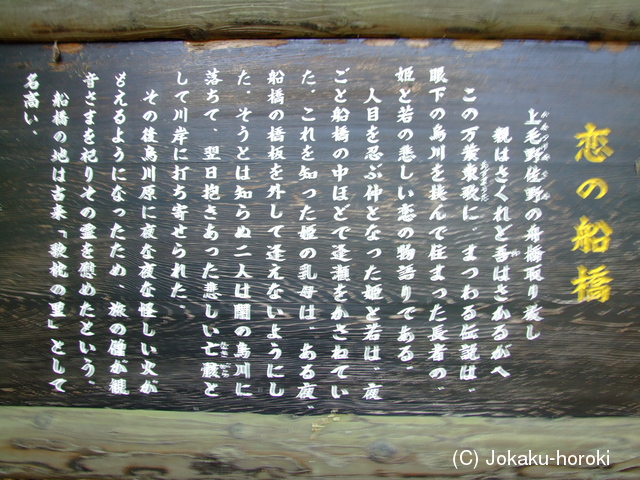 恋の船橋
上毛野佐野の舟橋取り放し
親はさくれど吾はさかるがへ
この万葉東歌に、まつわる伝説は、
眼下の烏川を挟んで住まった長者の、
姫と若の悲しい恋の物語りである。
人目を忍ぶ仲となった姫と若は、夜
ごと船橋の中ほどで逢瀬をかさねてい
た。これを知った姫の乳母は、ある夜、
船橋の橋板を外して逢えないようにし
た。そうとは知らぬ二人は闇の烏川に
落ちて、翌日抱きあった悲しい亡骸と
して川岸に打ち寄せられた
その後烏川原に夜な夜な怪しい火が
もえるようになったため、旅の僧が観
音さまを祀りその霊を慰めたという。
船橋の地は古来「歌枕の里」として
名高い。
(C) Jokaku-horoki